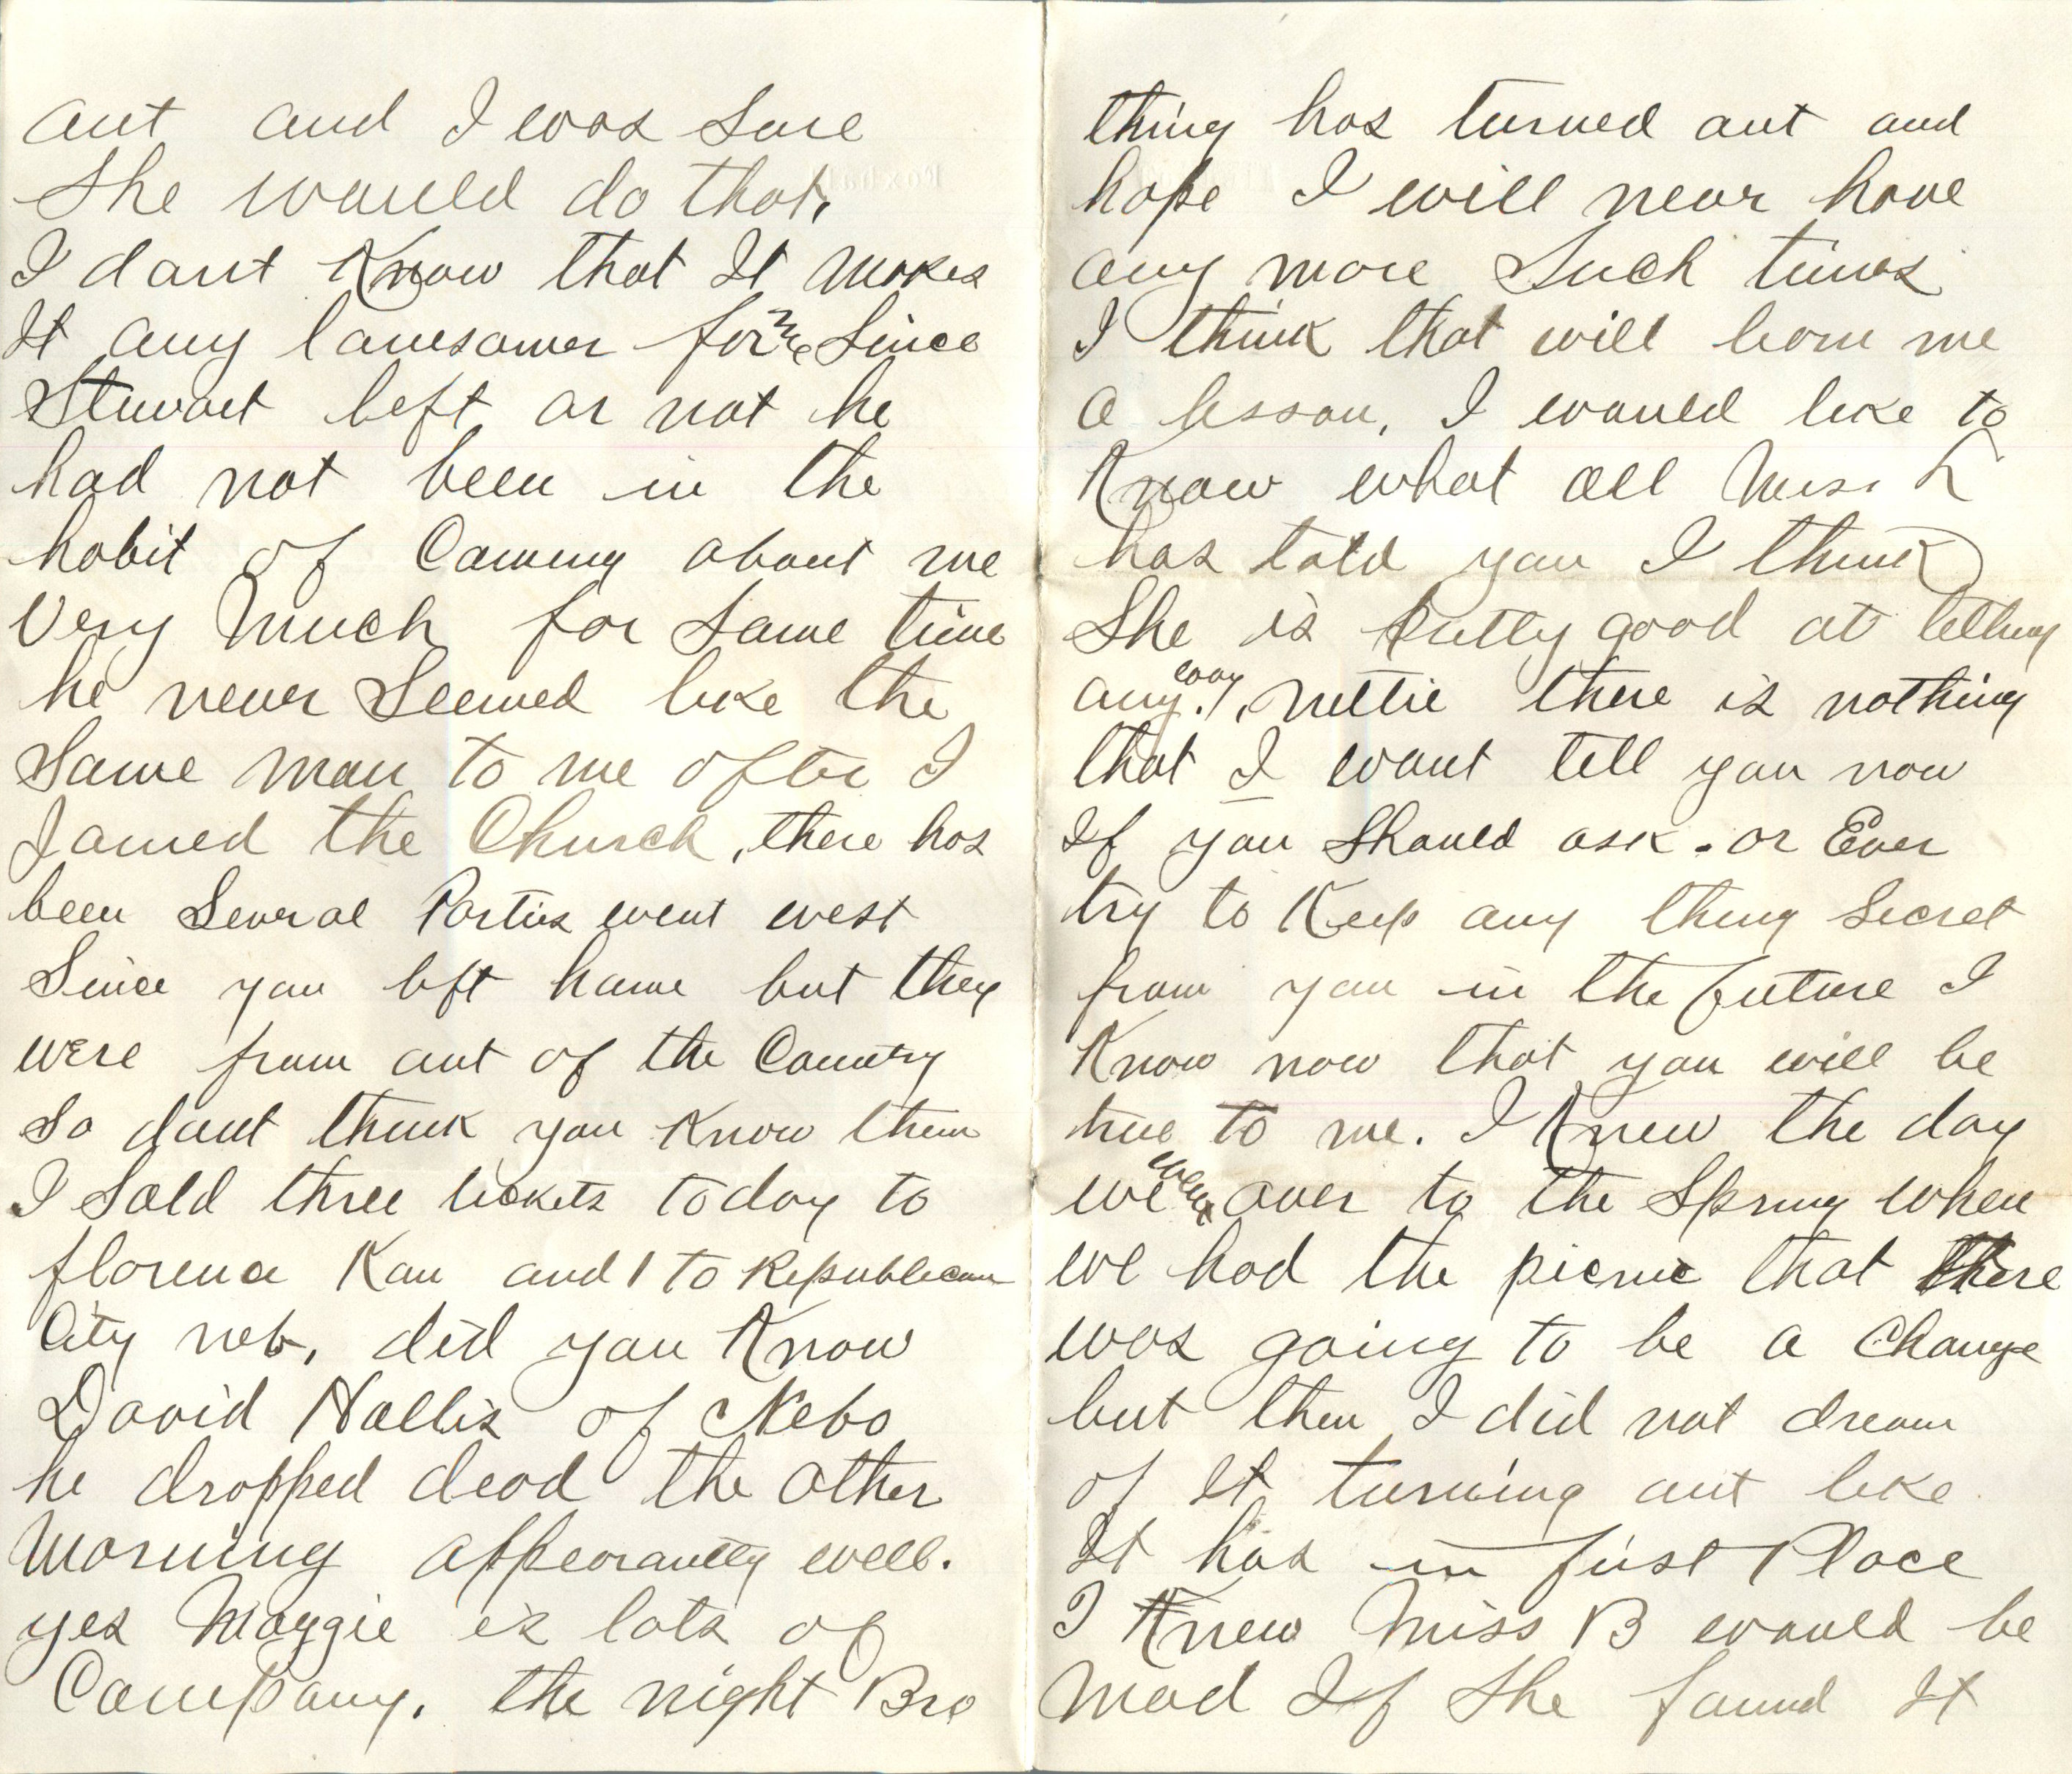 out and I was sure
she would do that.
I dont Know that It makes
It any lonesomer for me since
Stewart left or not he
had not been in the
habit of Coming about me
Very Much for some time
he never seemed like the
same man to me after I
Joined the Church, there has
been several Parties went west
since you left home but they
were from out of the Country
so dont think you Know them
I sold three tickets today to
florence Kan and 1 to Republican
City neb, did you Know
David Hollis of Nebo
he dropped dead the other
Morning appearantly well.
yes Maggie is lots of
Company. the night Bro
thing has turned out and
hope I will never have
any more such times
I think that will learn me
a lesson, I would like to
Know what all Miss L
has told you I think
she is putty good at telling
any way. Nettie there is nothing
that I wont tell you now
If you should ask. or Ever
try to Keep any thing secret
from you in the future I
Know now that you will be
true to me. I Knew the day
we went over to the Spring when
we had the picnic that there
was going to be a change
but then I did not dream
of It turning out like
It has in first Place
I Knew Miss B would be
mad If she found It